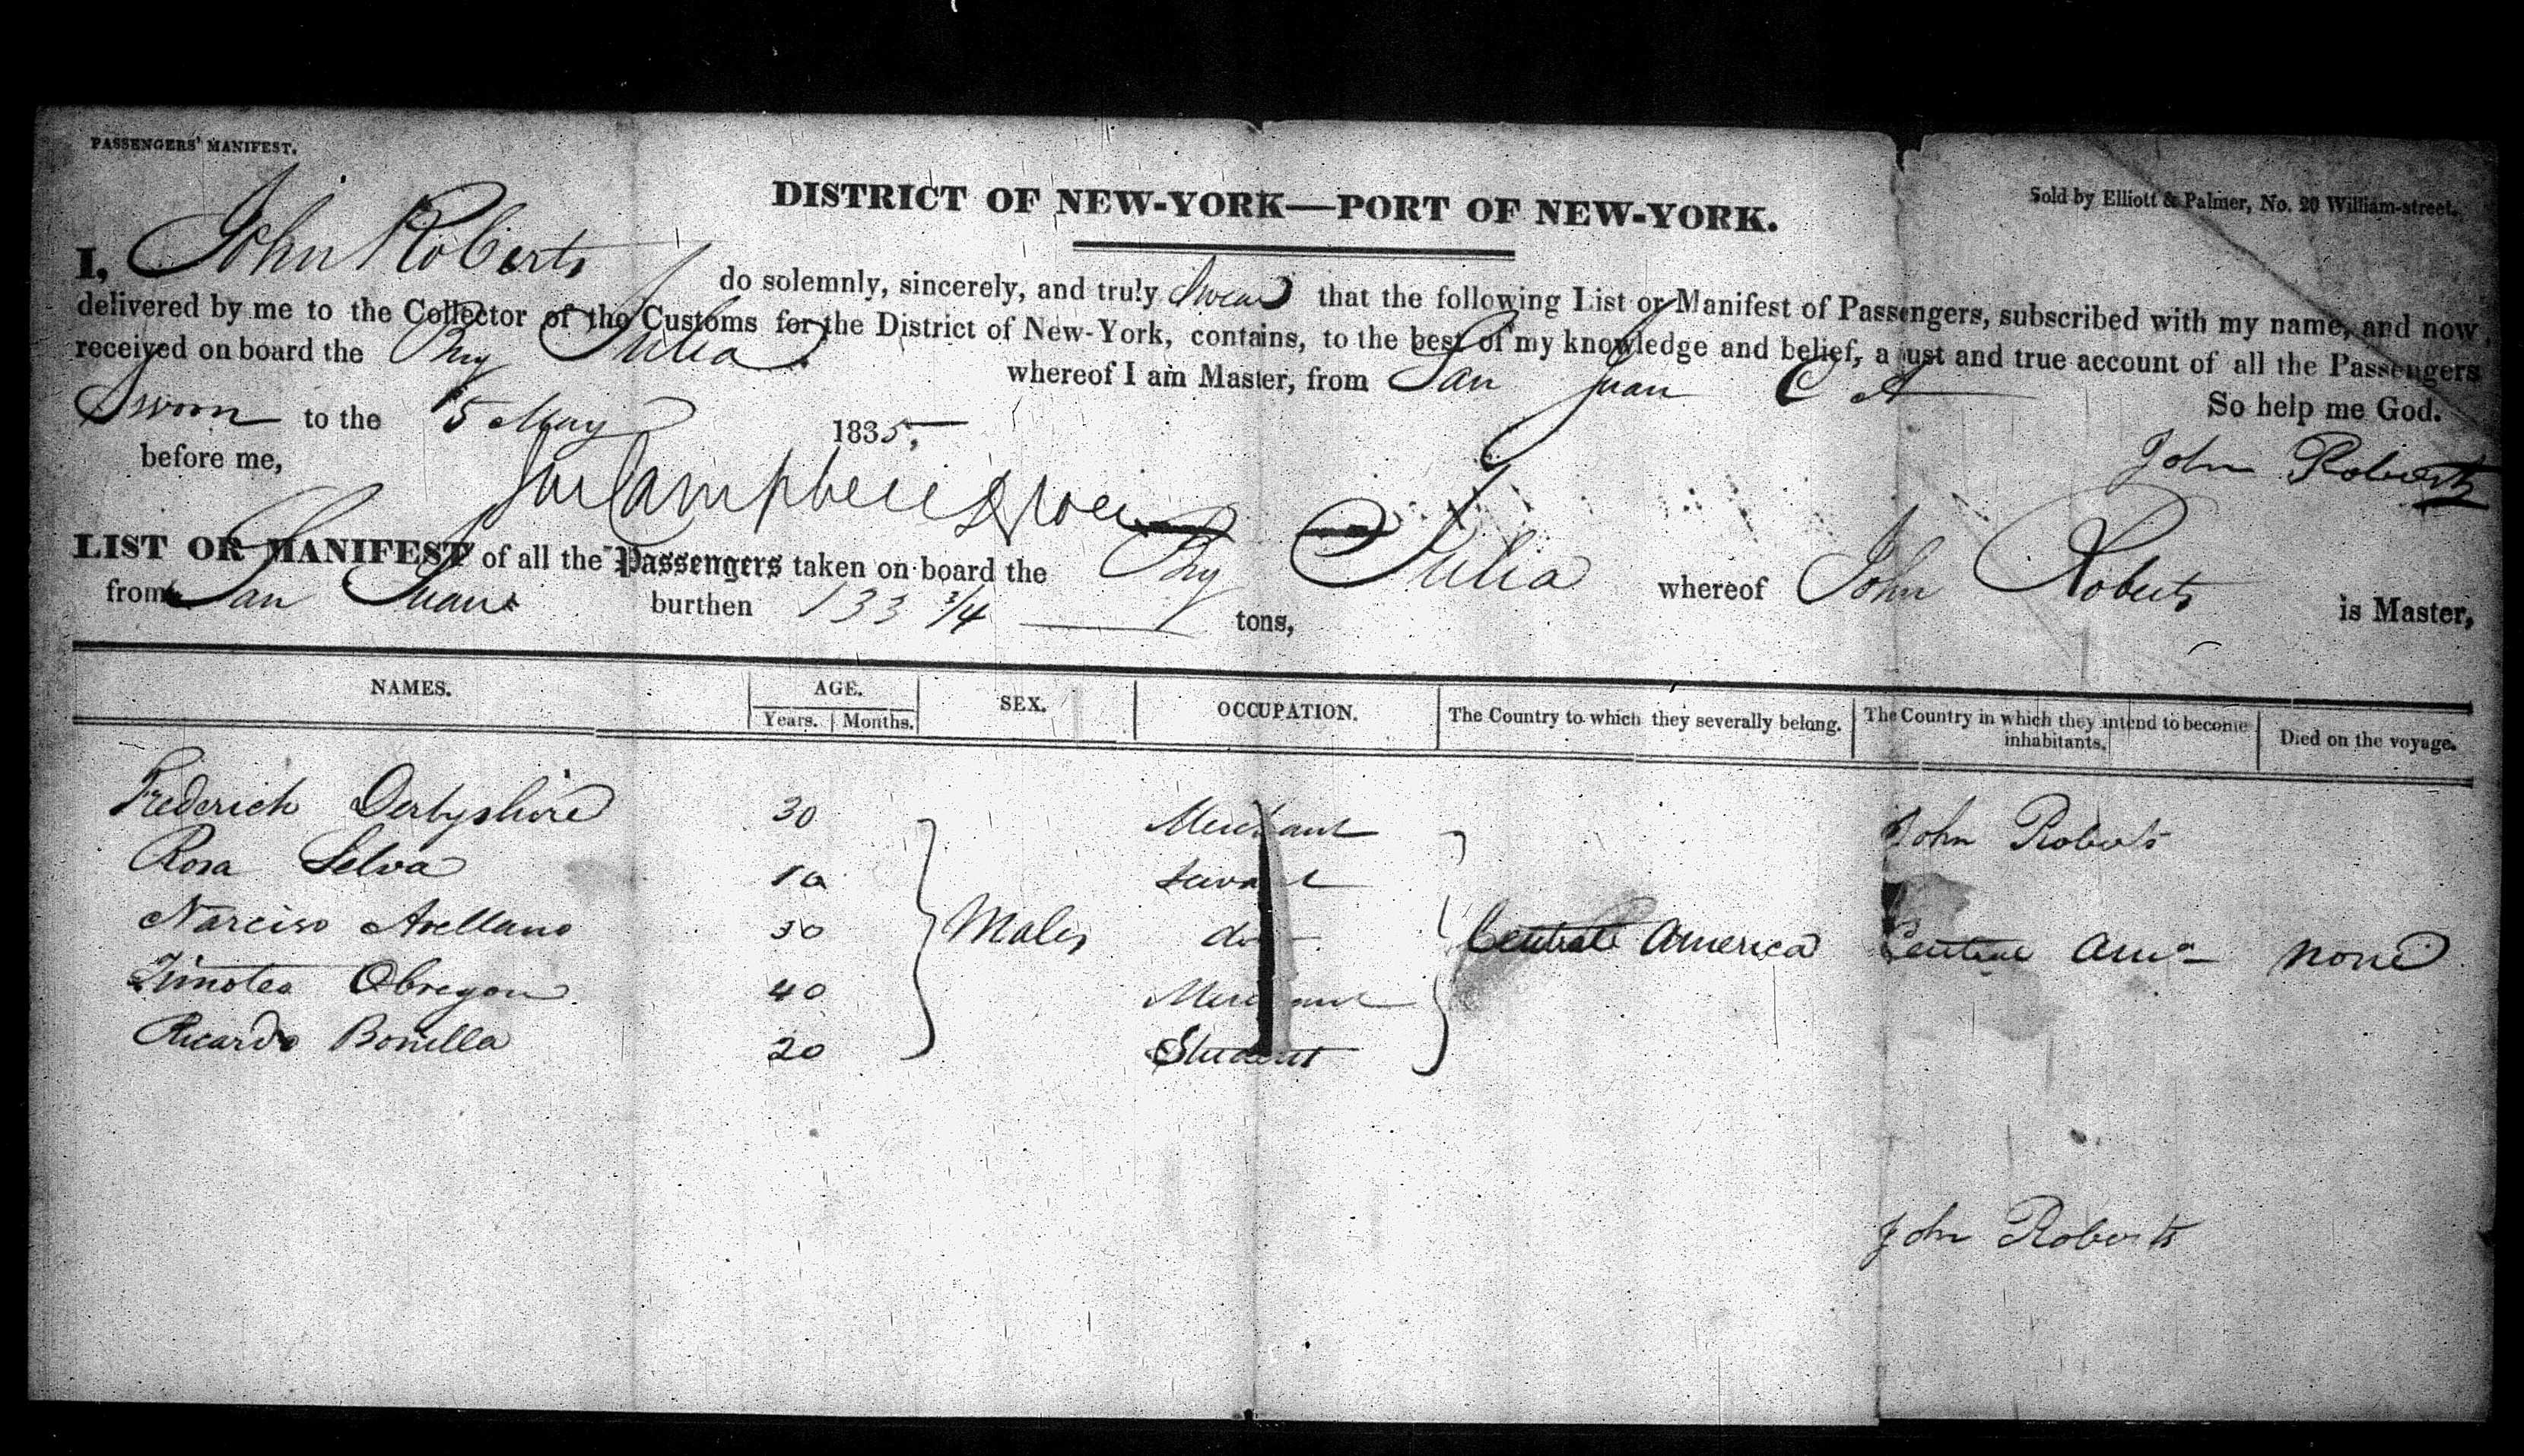 PASSENGERS' MANIFEST.
DISTRICT OF NEW-YORK—PORT OF NEW-YORK.
Sold by Elliott & Palmer, No. 20 William-street.
I, John Roberts do solemnly, sincerely, and truly Swear that the following List or Manifest of Passengers, subscribed with my name, and now
delivered by me to the Collector of the Customs for the District of New-York, contains, to the best of my knowledge and belief, a just and true account of all the Passengers
received on board the Brig Julia whereof I am Master, from San Juan C A
Sworn to the 15 May 1835, So help me God.
before me, John Roberts
LIST OR MANIFEST of all the Passengers taken on board the Brig Julia whereof John Roberts is Master,
from San Juan burthen 133 3/4 tons,
NAMES. AGE. SEX. OCCUPATION. The Country to which they severally belong. The Country in which they intend to become inhabitants. Died on the voyage.
Years. Months.
Frederick Derbyshire 30 Merchant John Roberts
Rosa Selva Servant
Narciso Arellano 30 Males do Central America Central Ama None
Timoteo Obregon 40 Merchant
Ricardo Bonilla 20 Student
John Roberts